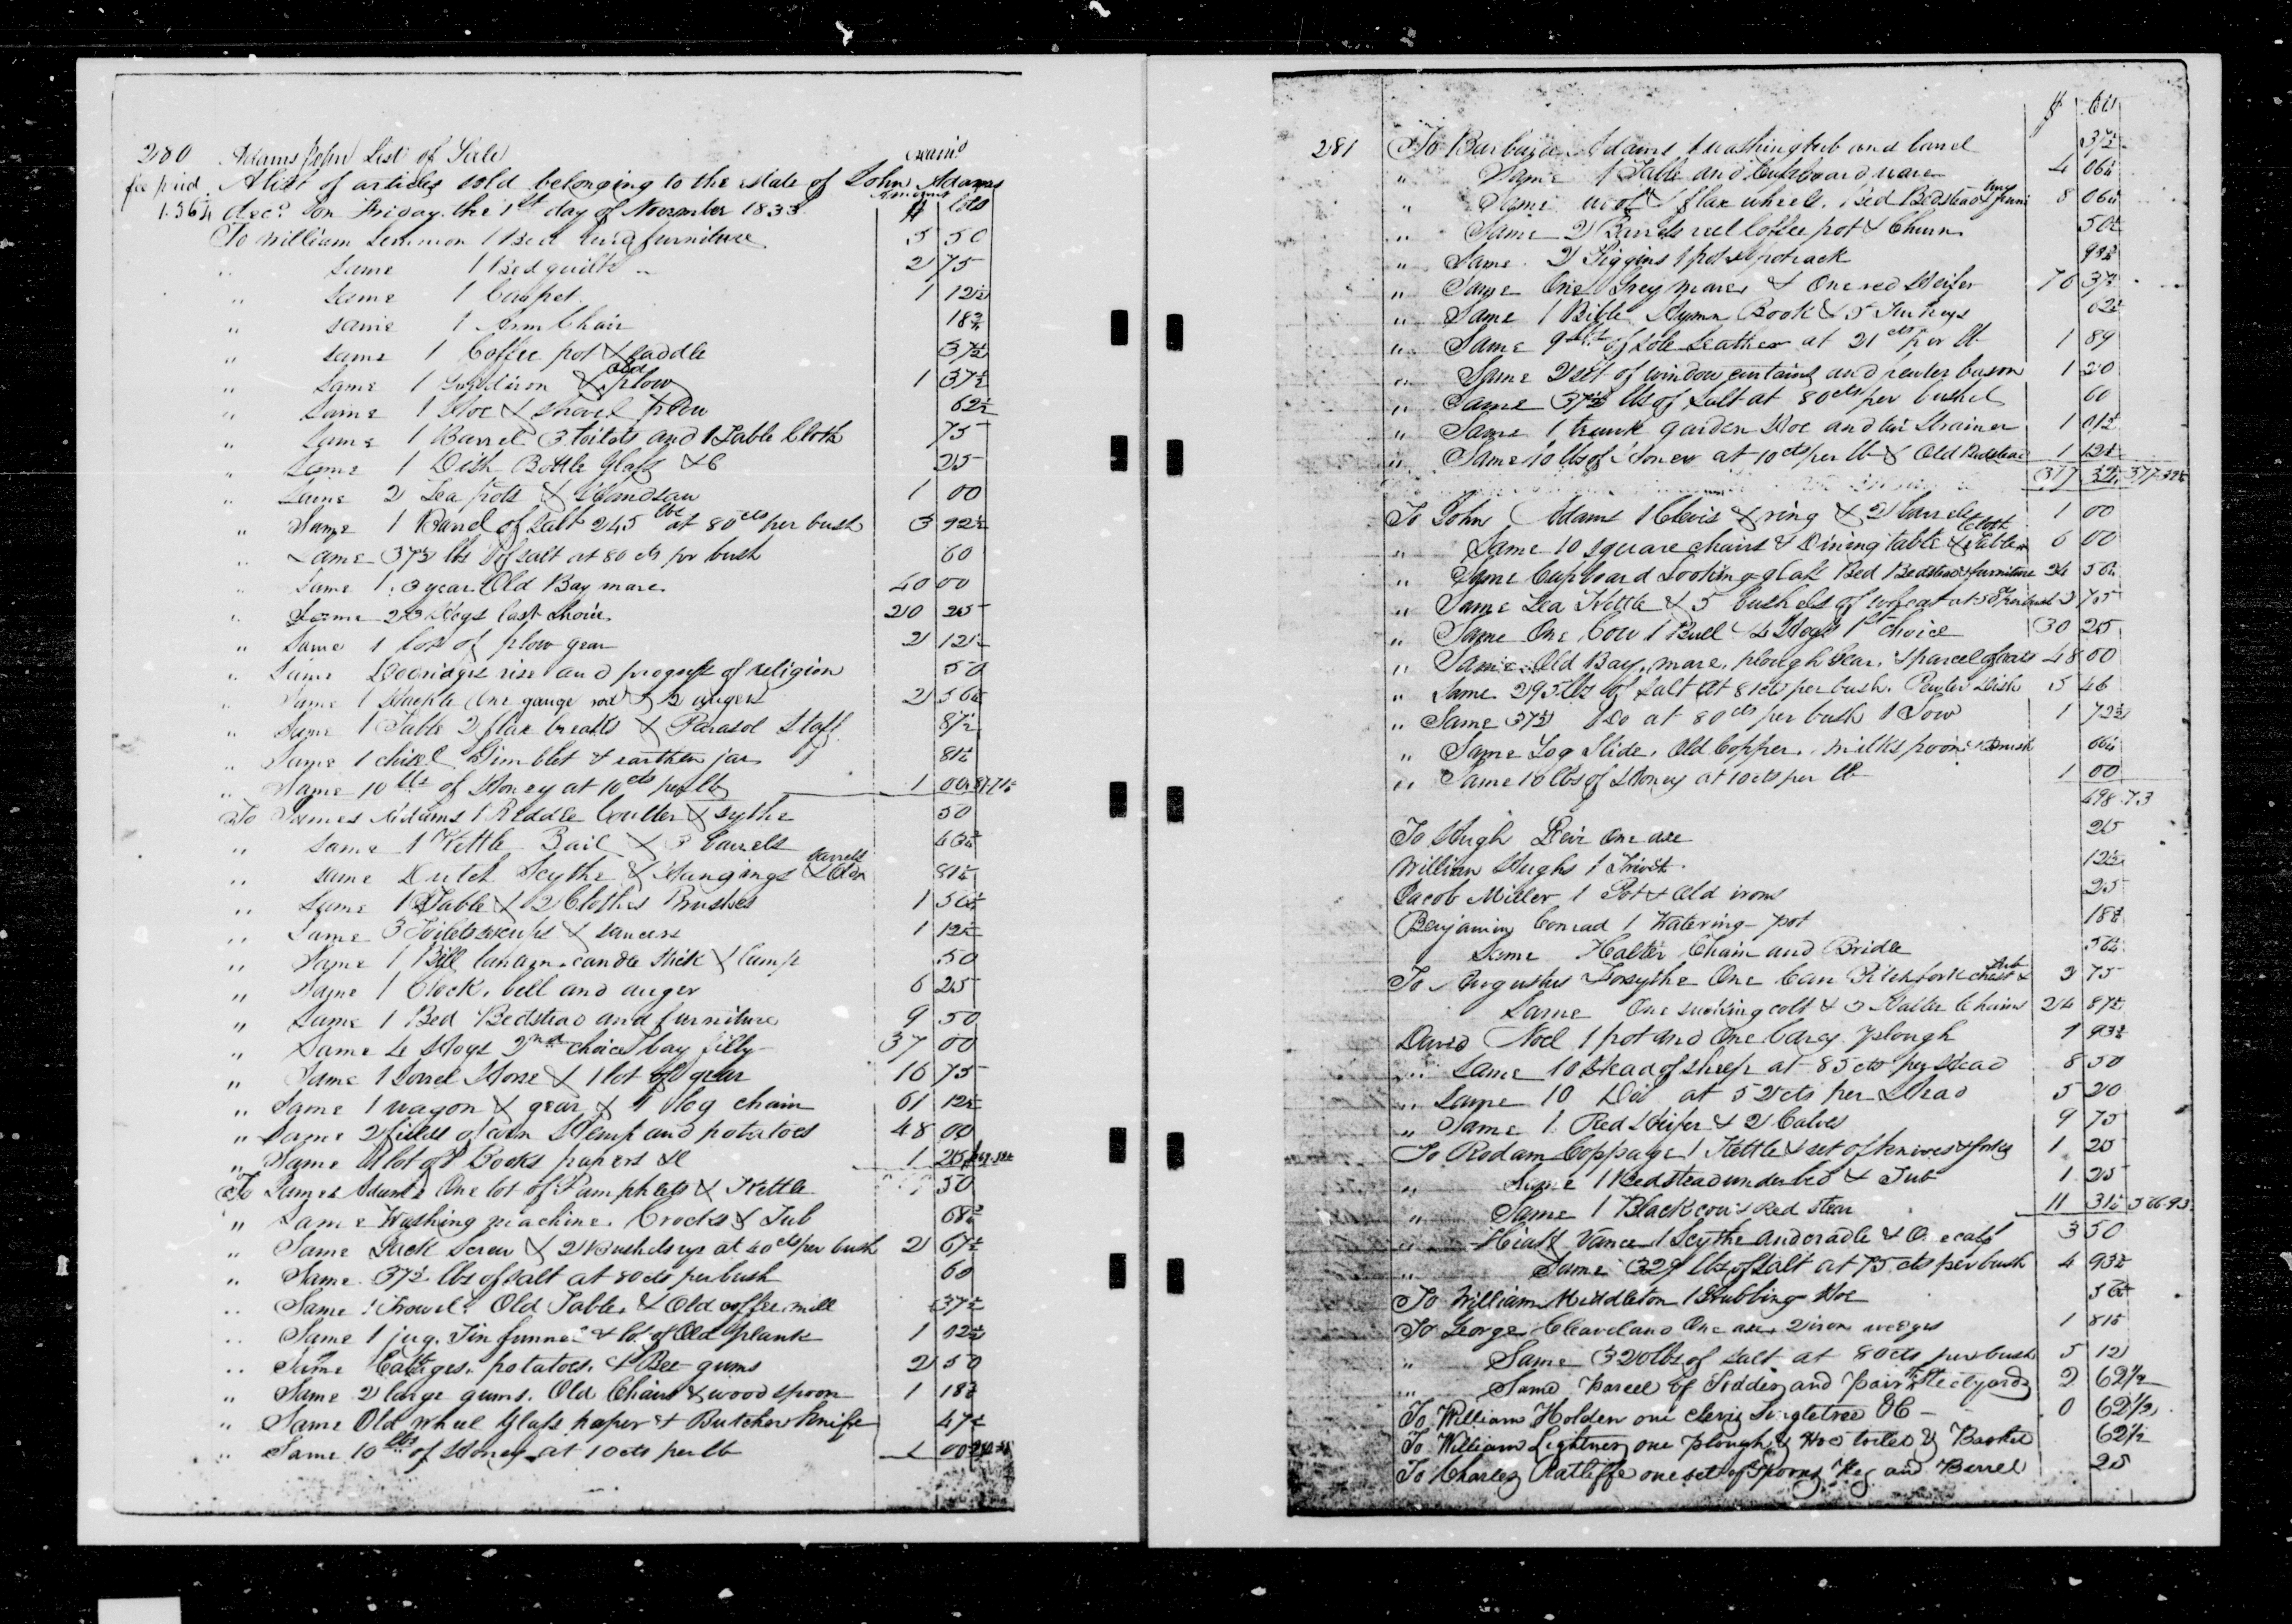 280 Adams John List of Sale Exam'd
fee paid A list of articles sold belonging to the estate of John Adams
1.56¼ decd. on Friday the 1st day of November 1833 Amount $ Cts
To William Lemmon 1 Bed and furniture 5 50
" same 1 Bed quilt " 2 75
" same 1 Carpet 1 12½
" same 1 Arm Chair 18¾
" same 1 Coffee pot & saddle 37½
" same 1 Gridiron & plow 1 37½
" same 1 Hoe & shovel plow 62½
" same 1 Barrel 3 toilets and 1 Table Cloth 75
" same 1 Dish Bottle Glass &C 25
" same 2 Tea pots & Handsaw 1 00
" Same 1 Barrel of salt 245 lbs at 80 cts per bush 3 92½
" Same 37½ lbs of salt at 80 cts per bush 60
" same 1. 3 year Old Bay mare 40 00
" Same 23 Hogs last choice 20 25
" same 1 lot of plow gear 2 12½
" same Dodridges rise and progress of religion 50
" Same 1 One gauge rod & 2 augers 2 56¼
" Same 1 Table 2 flax breaks & Parasol Staff 87½
" Same 1 chisel Gimblet & earthen jar 81¼
" Same 10 lbs of Honey at 10 cts per lb 1 00
To James Adams 1 Riddle Coulter & sythe 50
" same 1 Kettle Bail & 3 barrels 43¾
" same Dutch Scythe & Hangings & Old barrels 81¼
" same 1 Table & 2 Clothes Brushes 1 56¼
" same 3 Toilets & saucers 1 12½
" Same 1 Bell lantern candle stick & lamp 50
" Same 1 Clock, bell and auger 6 25
" Same 1 Bed Bedstead and furniture 9 50
" Same 4 Hogs 2nd choice 1 bay filly 37 00
" Same 1 Sorrel Horse & 1 lot old gear 16 75
" Same 1 wagon & gear & 1 log chain 61 12½
" Same 2 fields of corn Hemp and potatoes 48 00
" Same A lot of Books papers &c 1 25
To James Adams One lot of Pamphlets & Kettle 50
" Same Washing machine. Crocks & Tub 68¾
" Same Jack Screw & 2 Bushels rye at 40 cts per bush 2 67½
" Same 37½ lbs of salt at 80 cts per bush 60
" Same 1 Trowel. Old Table. & Old coffee mill 37½
" Same 1 jug. Tin funnel & lot of Old plank 1 92½
" Same Cabbages. potatoes. & Bee gums 2 50
" Same 2 large gums. Old Chair & wood spoon 1 18¾
" Same Old wheel Glass paper & Butcher knife 47½
" Same 10 lbs of Honey at 10 cts per lb 1 00
$ Cts
281 To Barbara Adams 1 washing tub and barrel 37½
" Same 1 Table and Cupboard ware 4 06¼
" Same wool & flax wheels. Bed Bedstead & 8 06¼
" Same 2 Barrels reel Coffee pot & Churn 50
" Same. 2 Piggins 1 pot & potrack 93¾
" Same One Grey mare & One red Heifer 76 37½
" Same 1 Bible Hymn Book & 5 Turkeys 62½
" Same 9 lbs of Sole Leather at 21 cts per lb 1 89
" Same 2 set of window curtains and pewter bason 1 20
" Same 37½ lbs of salt at 80 cts per bushel 60
" Same 1 trunk garden Hoe and tin Strainer 1 01½
" Same 10 lbs of Honey at 10 cts per lb & Old Bedstead 1 12½
To John Adams 1 Clevis & ring & 2 barrels 1 00
" Same 10 square chairs & Dining table & table Cloth 6 00
" Same Cupboard Looking glass Bed Bedstead & furniture 24 50
" Same Tea Kettle & 5 bushels of wheat at 50 cts per bush 2 75
" Same One Cow 1 Bull 4 Hogs 1st choice 30 25
" Same Old Bay mare, plough Gear. & parcel of oats 48 00
" Same 295 lbs of salt at 81 cts per bush. Pewter Dish 5 46
" Same 37½ Do at 80 cts per bush 1 Sow 1 72½
" Same Log Slide. Old Copper. milk spoon 06¼
" Same 10 lbs of Honey at 10 cts per lb 1 00
498.73
To Hugh One axe 25
William Hughs 1 Trivet 12½
Jacob Miller 1 Pot & Old irons 25
Benjamin Conrad 1 Watering pot 18¾
Same Halter Chain and Bridle 56¼
To Augustus Forsythe One Can Pitchfork chest & tub 2 75
Same One sucking colt & 3 Halter Chains 24 87½
David Noel 1 pot and One Carey plough 1 93¾
" Same 10 Head of sheep at 85 cts per Head 8 50
" Same 10 Do at 52 cts per Head 5 20
" Same 1. Red Heifer & 2 Calves 9 75
To Rodam Coppage 1 Kettle & set of knives & forks 1 25
" Same 1 Bedstead under bed & Tub 1 25
" Same 1 Black cow & Red stear 11 31¼ 566.93
" Hiatt Vance 1 Scythe and cradle & One calf 3 50
" Same 329 lbs of salt at 75 cts per bush 4 93½
To William Middleton 1 Grubbing Hoe 56¼
To George Cleaveland One axe 2 iron wedges 1 81¼
" Same 320 lbs of salt at 80 cts per bush 5 12
" Same Parcel of Fodder and pair Steelyards 2 62½
To William Holden one clevis Singletree &C 0 62½
To William Lightner one plough & Hoe toilet & Basket 62½
To Charles Ratliffe one set of Spoons Keg and Barrel 25